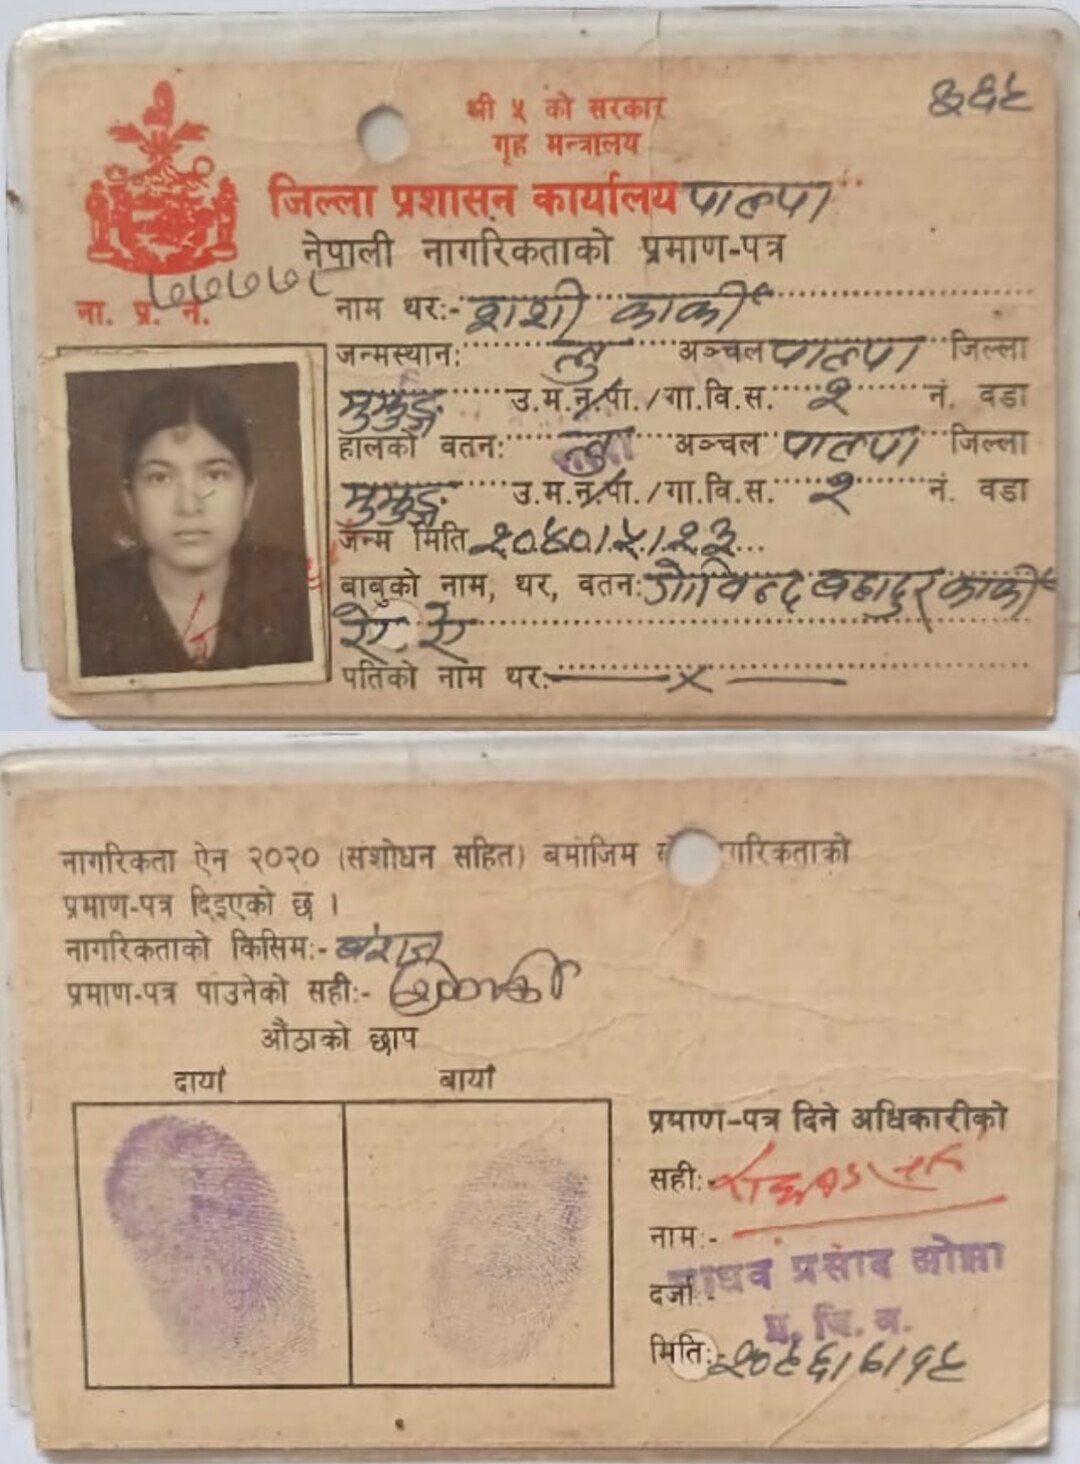 श्री ५ को सरकार
३६९
गृह मन्त्रालय
जिल्ला प्रशासन कार्यालय पाल्पा
नेपाली नागरिकताको प्रमाण-पत्र
ना. प्र. नं.
नाम थर:- शशी कार्की
जन्मस्थान: लु अञ्चल पाल्पा जिल्ला
उ.म.न.पा./गा.वि.स. २ नं. वडा
हालको वतन: लु अञ्चल पाल्पा जिल्ला
उ.म.न.पा./गा.वि.स. २ नं. वडा
जन्म मिति २०४०।५।२३
बाबुको नाम, थर, वतन: गोविन्द बहादुर कार्की
ऐ ऐ
पतिको नाम थर: x
नागरिकता ऐन २०२० (संशोधन सहित) बमोजिम
प्रमाण-पत्र दिइएको छ ।
नागरिकताको किसिम:- बंशज
प्रमाण-पत्र पाउनेको सही:-
औंठाको छाप
दायाँ बायाँ
प्रमाण-पत्र दिने अधिकारीको
सही:-
नाम:-
माधव प्रसाद ओझा
दर्जा:-
प्र. जि. अ.
मिति:-